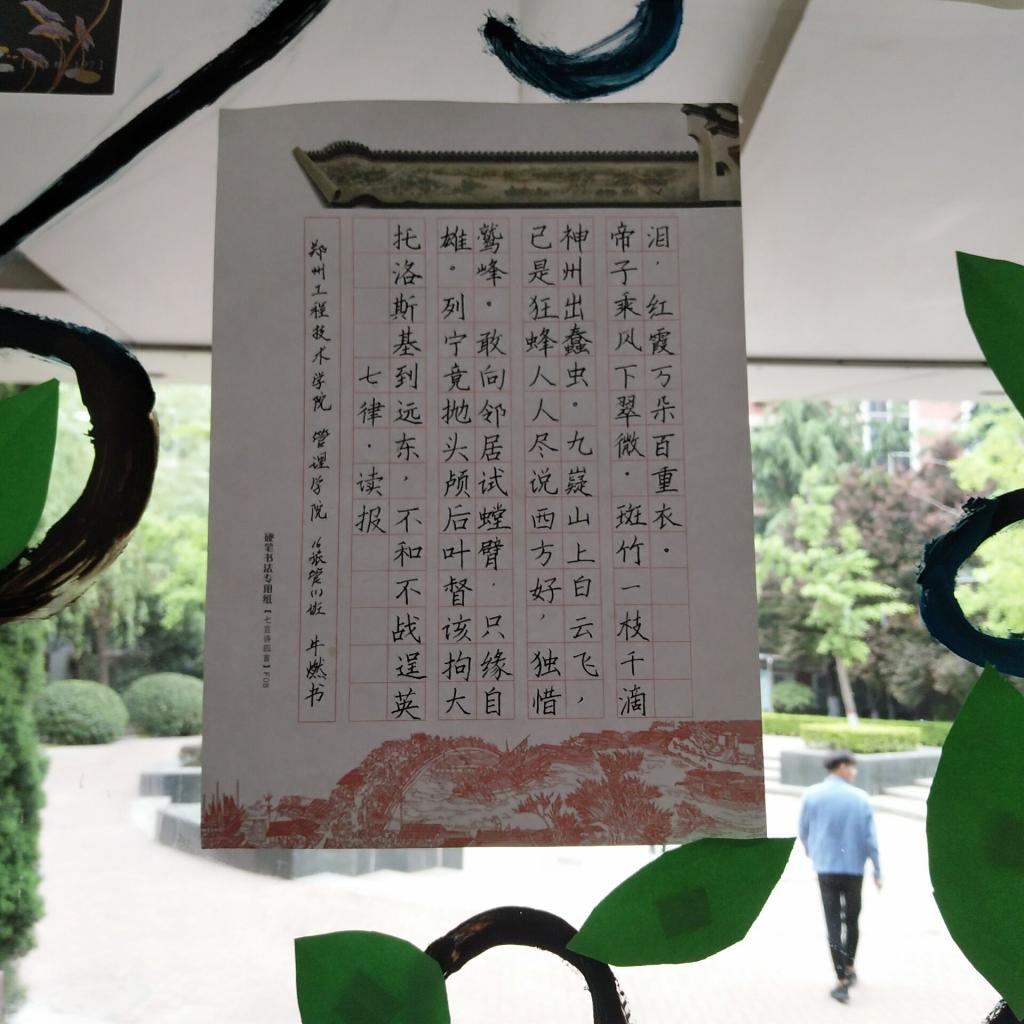 七律·读报
托洛斯基到远东，不和不战逞英
雄。列宁竟抛头颅后叶督该拘大
鹫峰。敢向邻居试螳臂，只缘自
已是狂蜂人人尽说西方好，独惜
神州出蠢虫。九嶷山上白云飞，
帝子乘风下翠微。斑竹一枝千滴
泪，红霞万朵百重衣。
郑州工程技术学院 管理学院 16旅管(1)班 牛燃书
硬笔书法专用纸【七言诗四首】F08